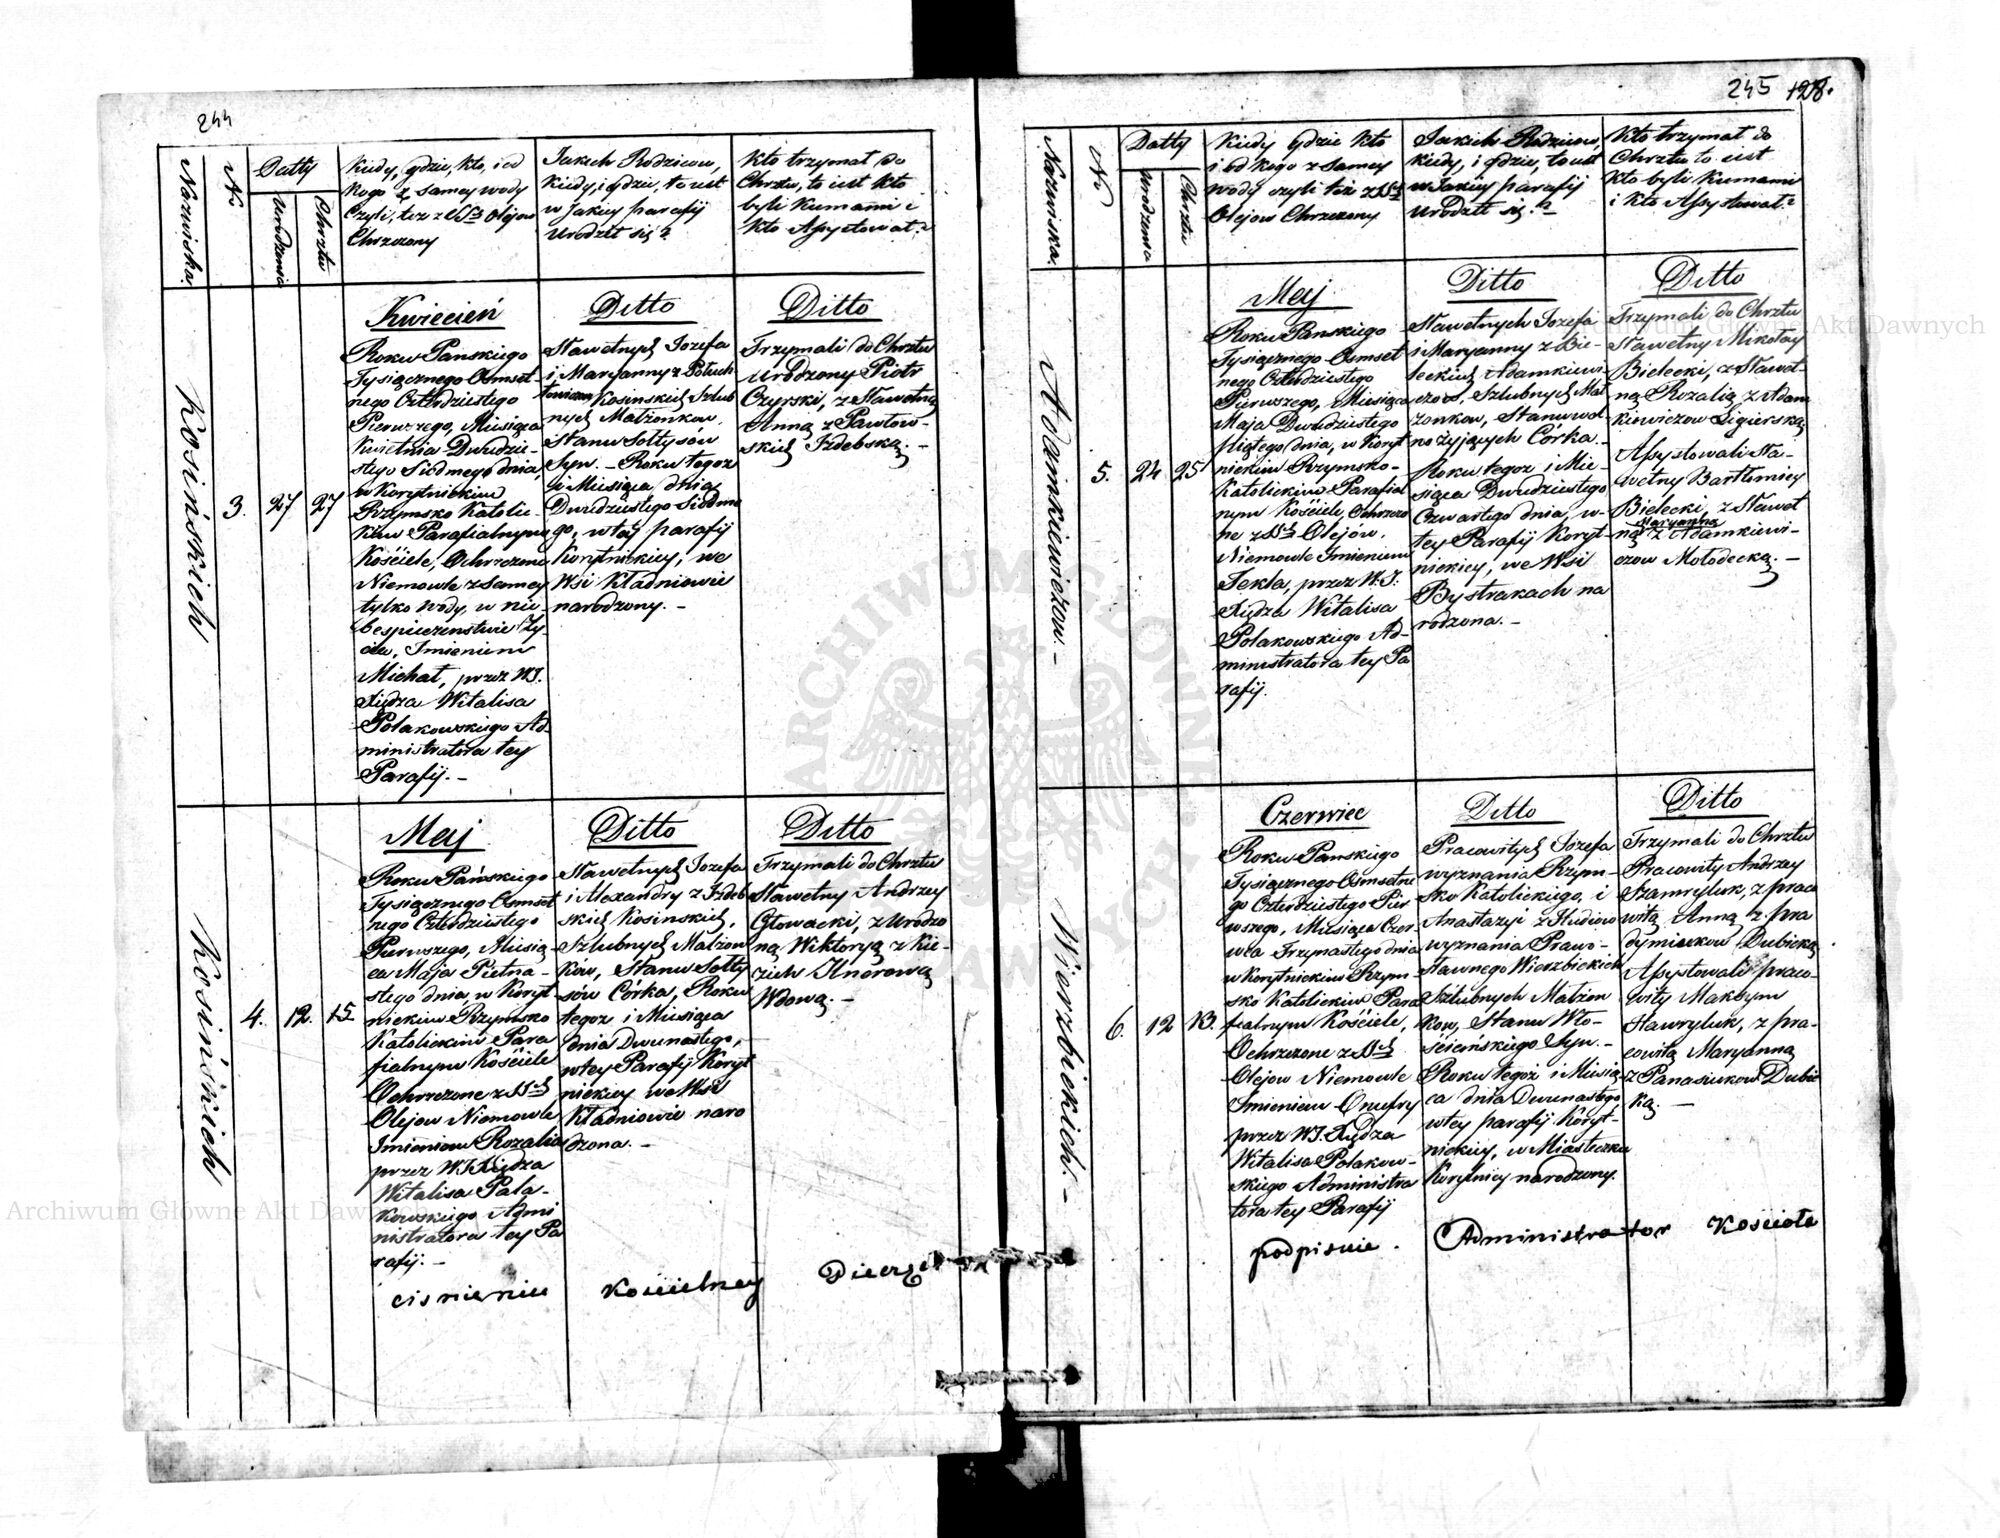 244
Nazwiska.
N.
Datty
Urodzenia
Chrztu
Kiedy, gdzie, kto, i od
kogo z samey wody
Czyli, tez z SSch Olejow
Chrzczony
Jakich Rodzicow,
kiedy, i gdzie, to iest
w Jakiey parafij
Urodził się?
Kto trzymał do
Chrztu, to iest kto
byli Kumami i
kto Assystował?
Kosińskich
3.
27
27
Kwiecień
Roku Panskiego
Tysiącznego Osmset-
nego Czterdziestego
Pierwszego, Miesiąca
Kwietnia Dwudzie-
stego Siodmego dnia,
w Korytnickim
Rzymsko Katolic-
kim Parafialnym
Kościele, Ochrzczone
Niemowle z Samey
tylko wody, w nie-
bespieczenstwie Ży-
cia, Imieniem
Michał, przez WJ.
Xiędza Witalisa
Polakowskiego Ad-
ministratora tey
Parafij. -
Ditto
Sławetnych Jozefa
i Maryanny z
Kosinskich Szlub
nych Małżonkow,
Stanu Sołtysow
Syn. - Roku tegoz
i Miesiąca dnia
Dwudziestego Siodme
go, w tey parafij
Korytnickiey, we
Wsi Kładniowie
narodzony. -
Ditto
Trzymali do Chrztu
Urodzony Piotr
Czyrski, z Sławetną
Anną z Pawłow-
skich Izdebską. -
Kosińskich
4.
12.
15
Maj
Roku Pańskiego
Tysiącznego Osmset
nego Czterdziestego
Pierwszego, Miesią-
ca Maja Pietna-
stego dnia, w Koryt
nickim Rzymsko
Katolickim Para
fialnym Kościele
Ochrzczone z SSch
Olejow Niemowle
Imieniem Rozalia
przez WJ Xiędza
Witalisa Pola-
kowskiego Admi
nistratora tey Pa
rafij. -
Ditto
Sławetnych Jozefa
i Alexandry z Izdeb
skich Kosinskich,
Szlubnych Małżon
ków, Stanu Sołty
sów Córka, Roku
tegoz i Miesiąca
dnia Dwunastego,
w tey Parafij Koryt
nickiey we Wsi
Kładniowie naro
dzona. -
Ditto
Trzymali do Chrztu
Sławetny Andrzey
Głowacki, z Urodzo
ną Wiktoryą z Kie-
zich Knorową
Wdową. -
cisnieniu Koscielney Pieczęci
245 128.
Nazwiska.
N.
Datty
Urodzenia
Chrztu
Kiedy gdzie kto
i od kogo z samey
wody czyli też z SSch
Olejow Chrzczony
Jakich Rodzicow,
kiedy, i gdzie, to iest
w Jakiey parafij
Urodził się? -
Kto trzymał do
Chrztu to iest
kto byli Kumami
i kto Assystował?
Adamkiewiczow. -
5.
24
25
Maj
Roku Panskiego
Tysiącznego Osmset
nego Czterdziestego
Pierwszego, Miesiąca
Maja Dwudziestego
Piątego dnia, w Koryt
nickim Rzymsko-
Katolickim Parafial
nym Kościele, Ochrzczo
ne z SSch Olejów,
Niemowle Imieniem
Tekla, przez W.J.
Xiędza Witalisa
Polakowskiego Ad-
ministratora tey Pa
rafij.
Ditto
Sławetnych Jozefa
i Maryanny z Bie-
leckich Adamkiewi-
czow, Szlubnych Mał
żonkow, Stanu wol
no żyjących Córka. -
Roku tegoz i Mie-
siąca Dwudziestego
Czwartego dnia, w-
tey Parafij Koryt-
nickiey, we Wsi
Bystrakach na
rodzona. -
Ditto
Trzymali do Chrztu
Sławetny Mikołay
Bielecki, z Sławet-
ną Rozalią z Adam
kiewiczow Ligierską
Assystowali Sła-
wetny Bartłomiey
Bielecki, z Sławet
Maryanną
ną z Adamkiewi-
czow Mołodecką. -
Wierzbickich. -
6.
12
13.
Czerwiec
Roku Panskiego
Tysiącznego Osmsetne
go Czterdziestego Pier
wszego, Miesiąca Czer-
wca Trzynastego dnia
w Korytnickim Rzym-
sko Katolickim Para
fialnym Kościele,
Ochrzczone z SSch
Olejow Niemowle
Imieniem Onufry
przez WJ. Xiędza
Witalisa Polakow-
skiego Administra
tora tey Parafij
Ditto
Pracowitych Jozefa
wyznania Rzym-
sko Katolickiego, i
Anastazyi z Hudiow
wyznania Prawo-
sławnego Wierzbickich
Szlubnych Małżon
kow, Stanu Wło-
ściańskiego Syn. -
Roku tegoż i Miesią
ca dnia Dwunastego
w tey parafij Koryt-
nickiey, w Miasteczku
Korytnicy narodzony.
Ditto
Trzymali do Chrztu
Pracowity Andrzey
Hawryluk, z praco
witą Anną z pra
dymiukow Dubicką
Assystowali praco-
wity Maksym
Hawryluk, z pra-
cowitą Maryanną
z Panasiukow Dubic
ką. -
podpisuie. Administrator Kościoła
Archiwum Główne Akt Dawnych
Archiwum Główne Akt Dawnych
ARCHIWUM GŁÓWNE AKT DAWNYCH